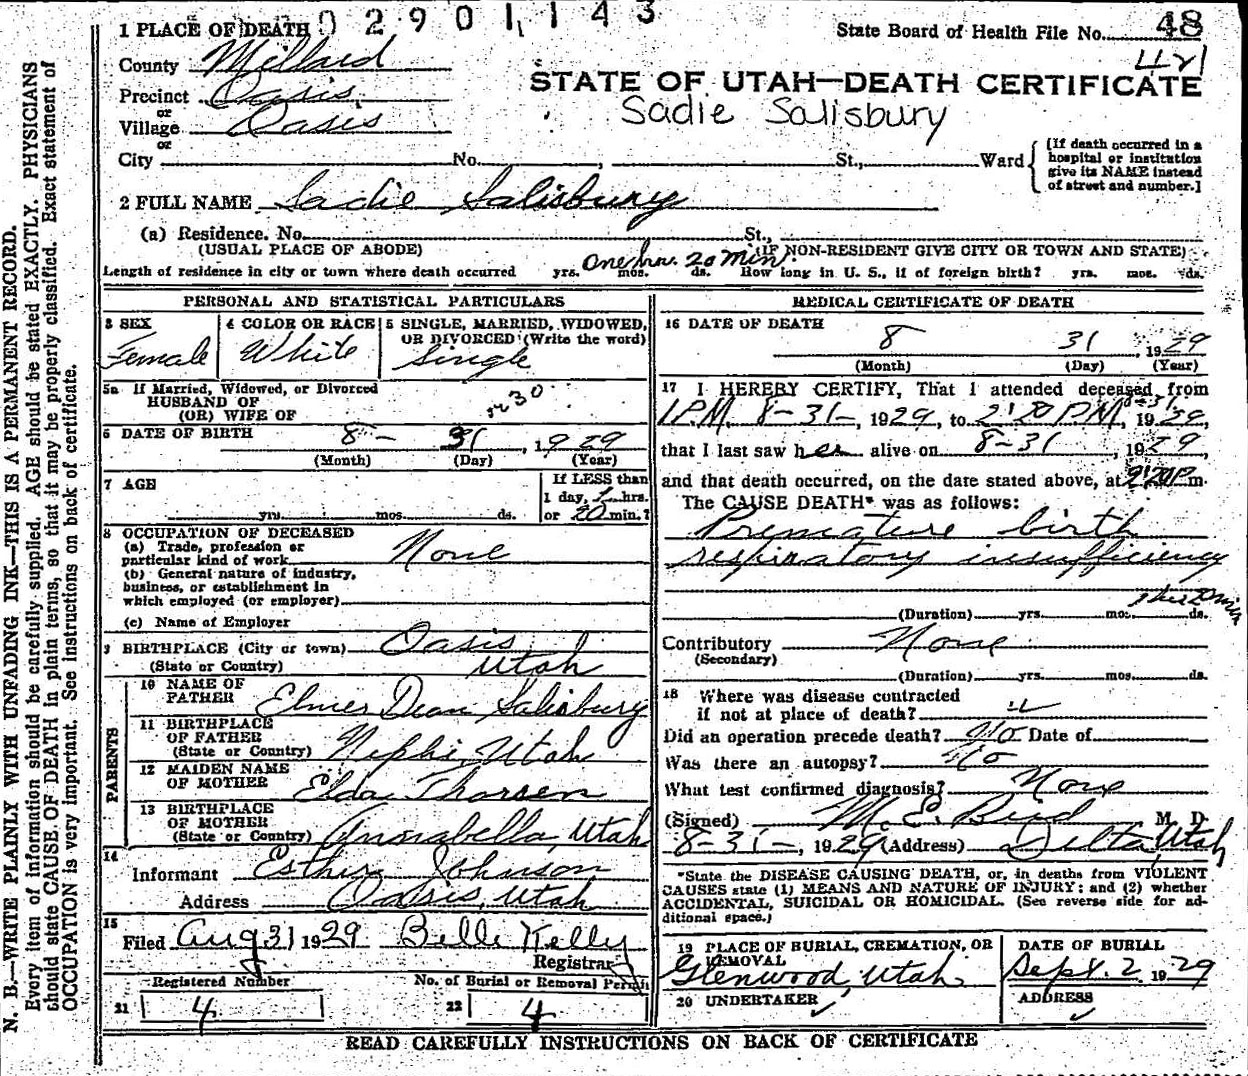 02901143
1 PLACE OF DEATH
State Board of Health File No. 48
421
County Millard
STATE OF UTAH—DEATH CERTIFICATE
Precinct Oasis
Sadie Salisbury
or
Village Oasis
or
City No. , St., Ward
[If death occurred in a
hospital or institution
give its NAME instead
of street and number.]
2 FULL NAME Sadie Salisbury
(a) Residence. No. St.,
(USUAL PLACE OF ABODE) (IF NON-RESIDENT GIVE CITY OR TOWN AND STATE)
Length of residence in city or town where death occurred yrs. mos. ds. How long in U. S., if of foreign birth? yrs. mos. ds.
One hr. 20 min.
PERSONAL AND STATISTICAL PARTICULARS
3 SEX
Female
4 COLOR OR RACE
White
5 SINGLE, MARRIED, WIDOWED,
OR DIVORCED (Write the word)
Single
5a If Married, Widowed, or Divorced
HUSBAND OF
(OR) WIFE OF
6 DATE OF BIRTH 8- 31, 1929
(Month) (Day) (Year)
7 AGE
yrs. mos. ds.
If LESS than
1 day, 1 hrs.
or 20 min.?
8 OCCUPATION OF DECEASED
(a) Trade, profession or
particular kind of work None
(b) General nature of industry,
business, or establishment in
which employed (or employer)
(c) Name of Employer
9 BIRTHPLACE (City or town) Oasis
(State or Country) Utah
PARENTS
10 NAME OF
FATHER Elmer Dean Salisbury
11 BIRTHPLACE
OF FATHER
(State or Country) Nephi, Utah
12 MAIDEN NAME
OF MOTHER Elda Thorsen
13 BIRTHPLACE
OF MOTHER
(State or Country) Annabella, Utah
14
Informant Esther Johnson
Address Oasis, Utah
15
Filed Aug 31 1929 Belle Kelly
Registrar
Registered Number
21 4
No. of Burial or Removal Permit
22 4
MEDICAL CERTIFICATE OF DEATH
16 DATE OF DEATH
8 31, 1929
(Month) (Day) (Year)
17 I HEREBY CERTIFY, That I attended deceased from
1 P.M. 8-31-, 1929, to 2:20 P.M. 8-31, 1929,
that I last saw her alive on 8-31, 1929,
and that death occurred, on the date stated above, at 2:20 P.m.
The CAUSE DEATH* was as follows:
Premature birth
respiratory insufficiency
1 hr 20 min
(Duration) yrs. mos. ds.
Contributory None
(Secondary)
(Duration) yrs. mos. ds.
18 Where was disease contracted
if not at place of death?
Did an operation precede death? No Date of
Was there an autopsy? No
What test confirmed diagnosis? None
(Signed) M. E. Bird M. D.
8-31-, 1929 (Address) Delta, Utah
*State the DISEASE CAUSING DEATH, or, in deaths from VIOLENT
CAUSES state (1) MEANS AND NATURE OF INJURY; and (2) whether
ACCIDENTAL, SUICIDAL OR HOMICIDAL. (See reverse side for ad-
ditional space.)
19 PLACE OF BURIAL, CREMATION, OR
REMOVAL
Glenwood, Utah
DATE OF BURIAL
Sept. 2, 1929
20 UNDERTAKER
ADDRESS
READ CAREFULLY INSTRUCTIONS ON BACK OF CERTIFICATE
N. B.—WRITE PLAINLY WITH UNFADING INK—THIS IS A PERMANENT RECORD.
Every item of information should be carefully supplied. AGE should be stated EXACTLY. PHYSICIANS
should state CAUSE OF DEATH in plain terms, so that it may be properly classified. Exact statement of
OCCUPATION is very important. See instructions on back of certificate.